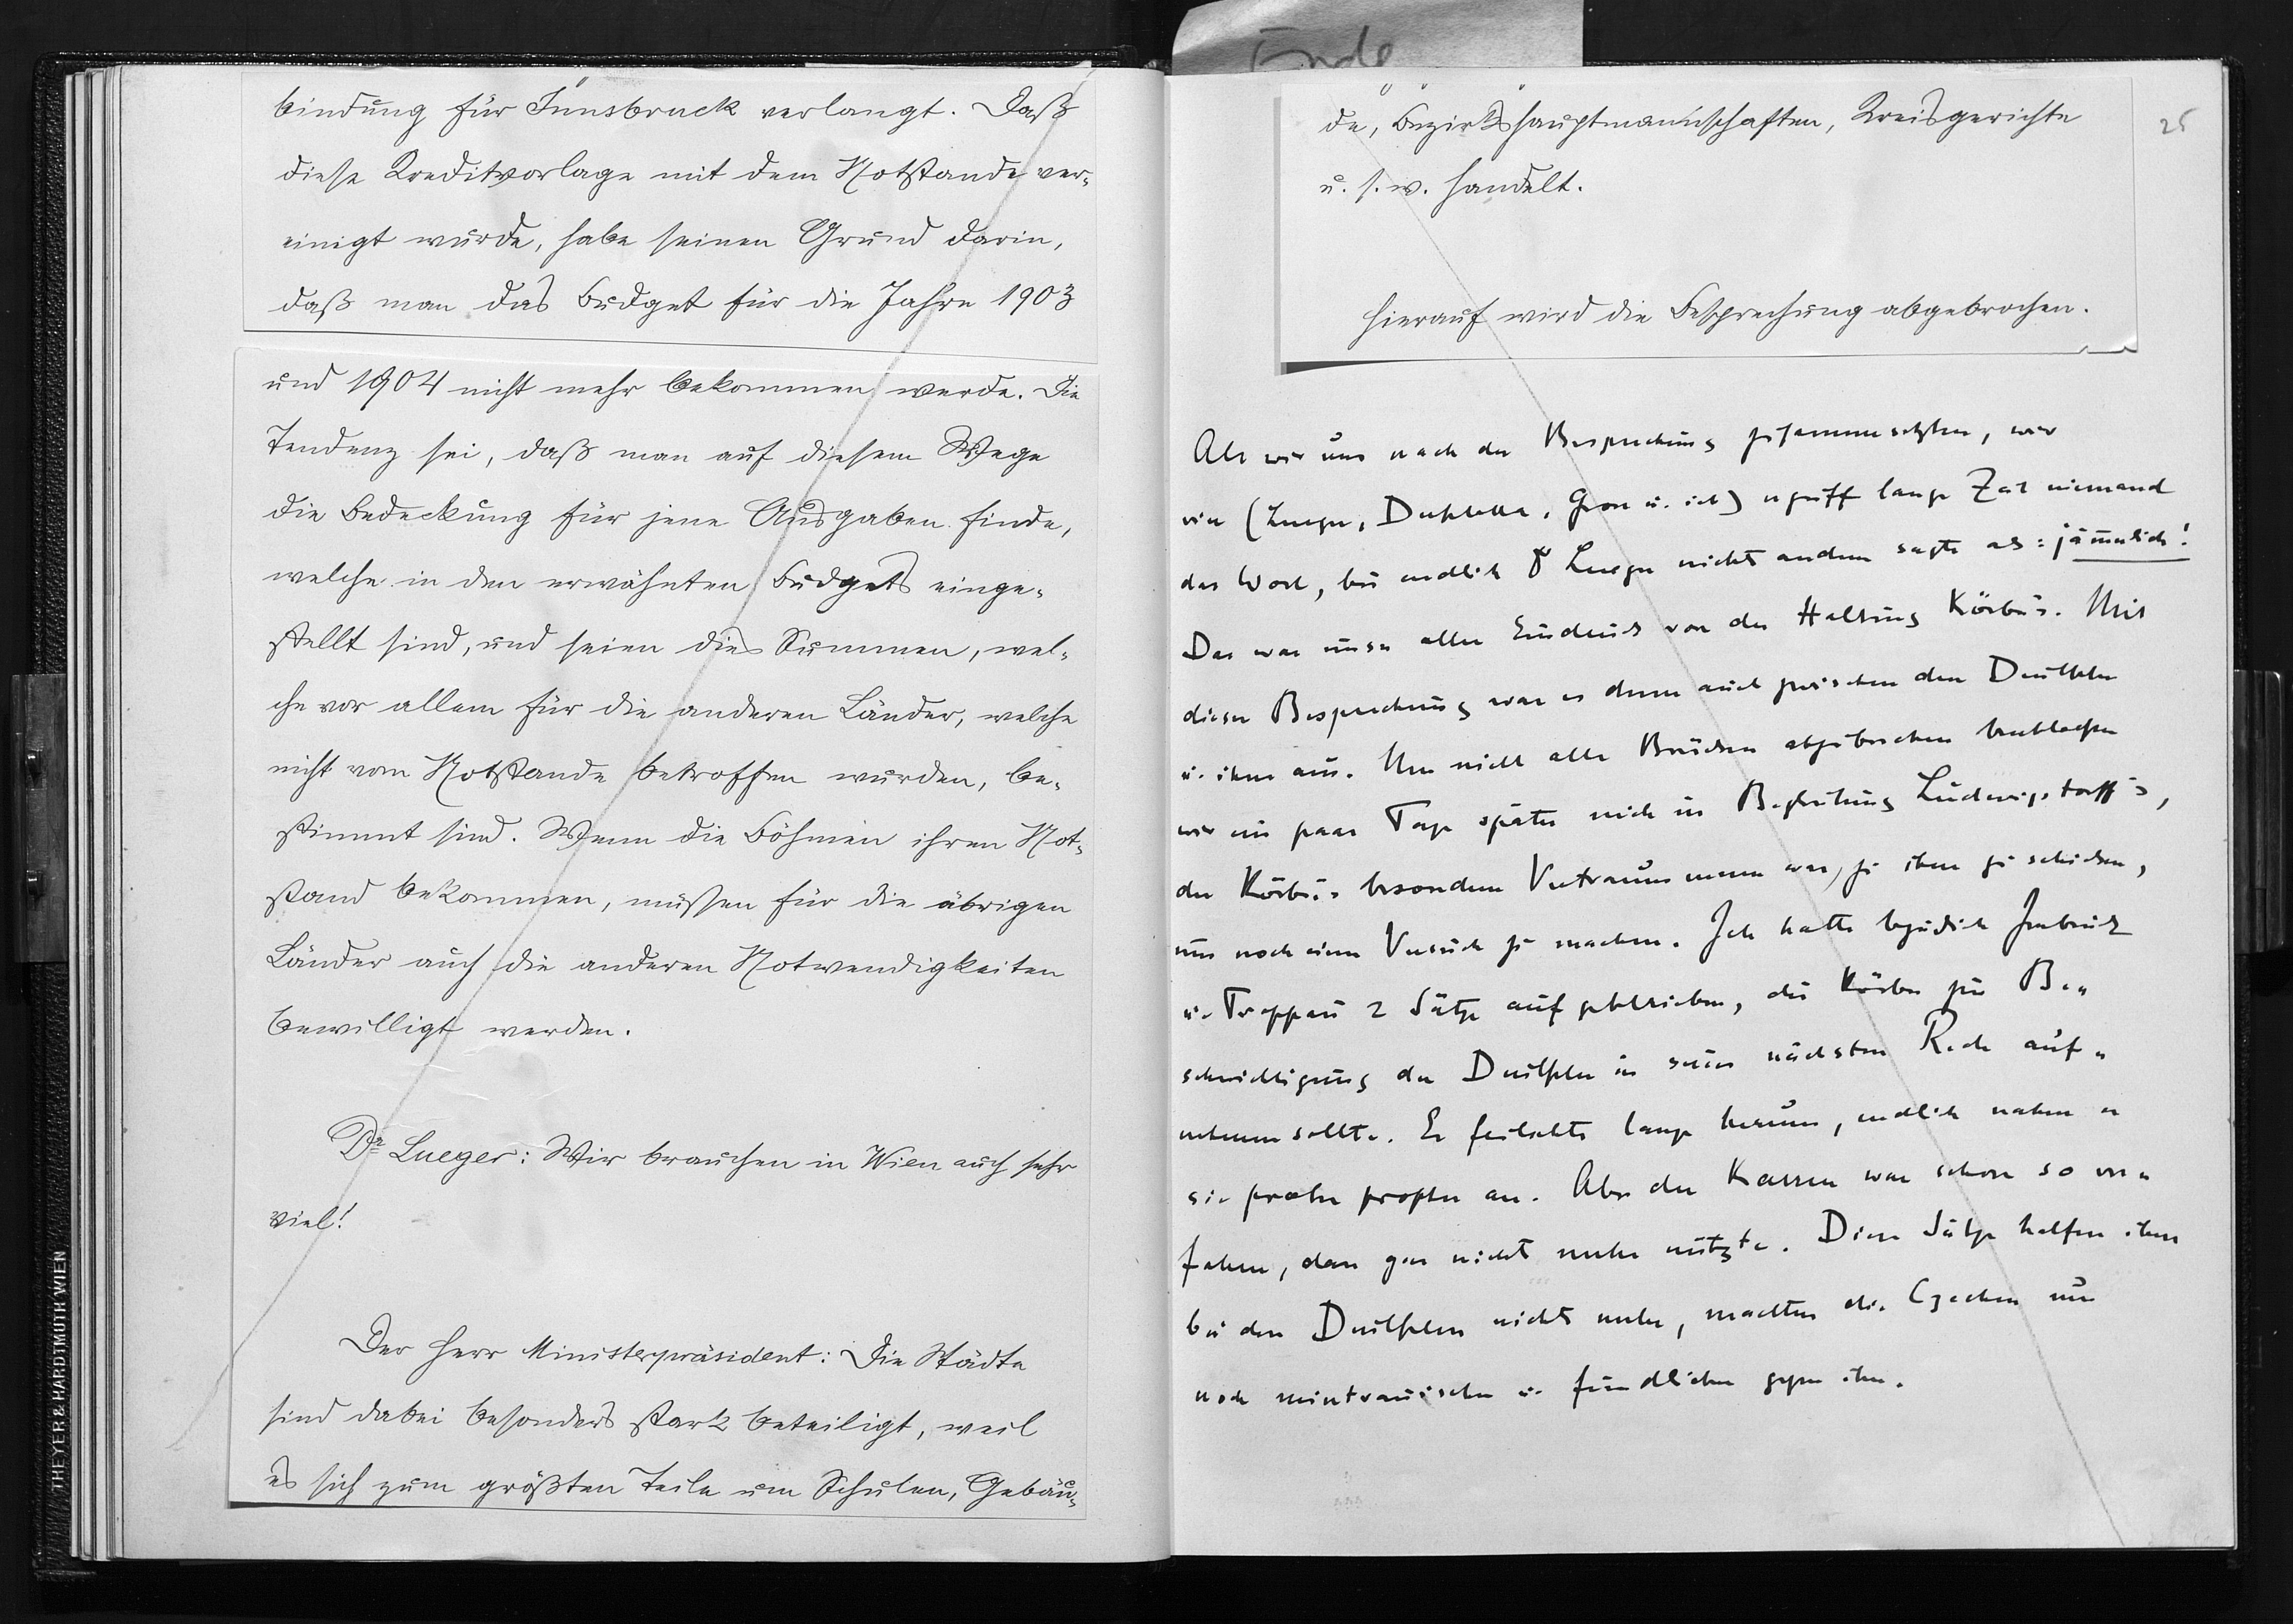 bindung für Innsbruck verlangt. Daß
diese Kreditvorlage mit dem Notstande ver-
einigt wurde, habe seinen Grund darin,
daß man das Budget für die Jahre 1903
und 1904 nicht mehr bekommen werde. Die
Tendenz sei, daß man auf diesem Wege
die Bedeckung für jene Ausgaben finde,
welche in den erwähnten Budgets einge-
stellt sind, und seien dies Summen, wel-
che vor allem für die anderen Länder, welche
nicht vom Notstande betroffen wurden, be-
stimmt sind. Wenn die Böhmen ihren Not-
stand bekommen, müssen für die übrigen
Länder auch die anderen Notwendigkeiten
bewilligt werden.
Dr Lueger: Wir brauchen in Wien auch sehr
viel!
Der Herr Ministerpräsident: Die Städte
sind dabei besonders stark beteiligt, weil
es sich zum größten Teile um Schulen, Gebäu-
THEYER & HARDTMUTH WIEN
Ende
25
de, Bezirkshauptmannschaften, Kreisgerichte
u. s. w. handelt.
Hierauf wird die Besprechung abgebrochen.
Als wir uns nach der Besprechung zusammensetzten, wir
vier (Lueger, Derschatta, Gross u. ich) ergriff lange Zeit niemand
das Wort, bis endlich Lueger nichts anderes sagte als: jämmerlich!
Das war unser aller Eindruck von der Haltung Körbers. Mit
dieser Besprechung war es denn auch zwischen den Deutschen
u. ihm aus. Um nicht alle Brücken abzubrechen beschlossen
wir ein paar Tage später mich in Begleitung Ludwigstorff's,
der Körbers besonderer Vertrauensmann war, zu ihm zu schicken,
um noch einen Versuch zu machen. Ich hatte bezüglich Innsbruck
u. Troppau 2 Sätze aufgeschrieben, die Körber zur Be-
schwichtigung der Deutschen in seine nächste Rede auf-
nehmen sollte. Er feilschte lange herum, endlich nahm er
sie propter an. Aber der Karren war schon so ver-
fahren, dass gar nichts mehr nützte. Diese Sätze halfen ihm
bei den Deutschen nichts mehr, machten die Czechen nur
noch misstrauischer u. feindlicher gegen ihn.